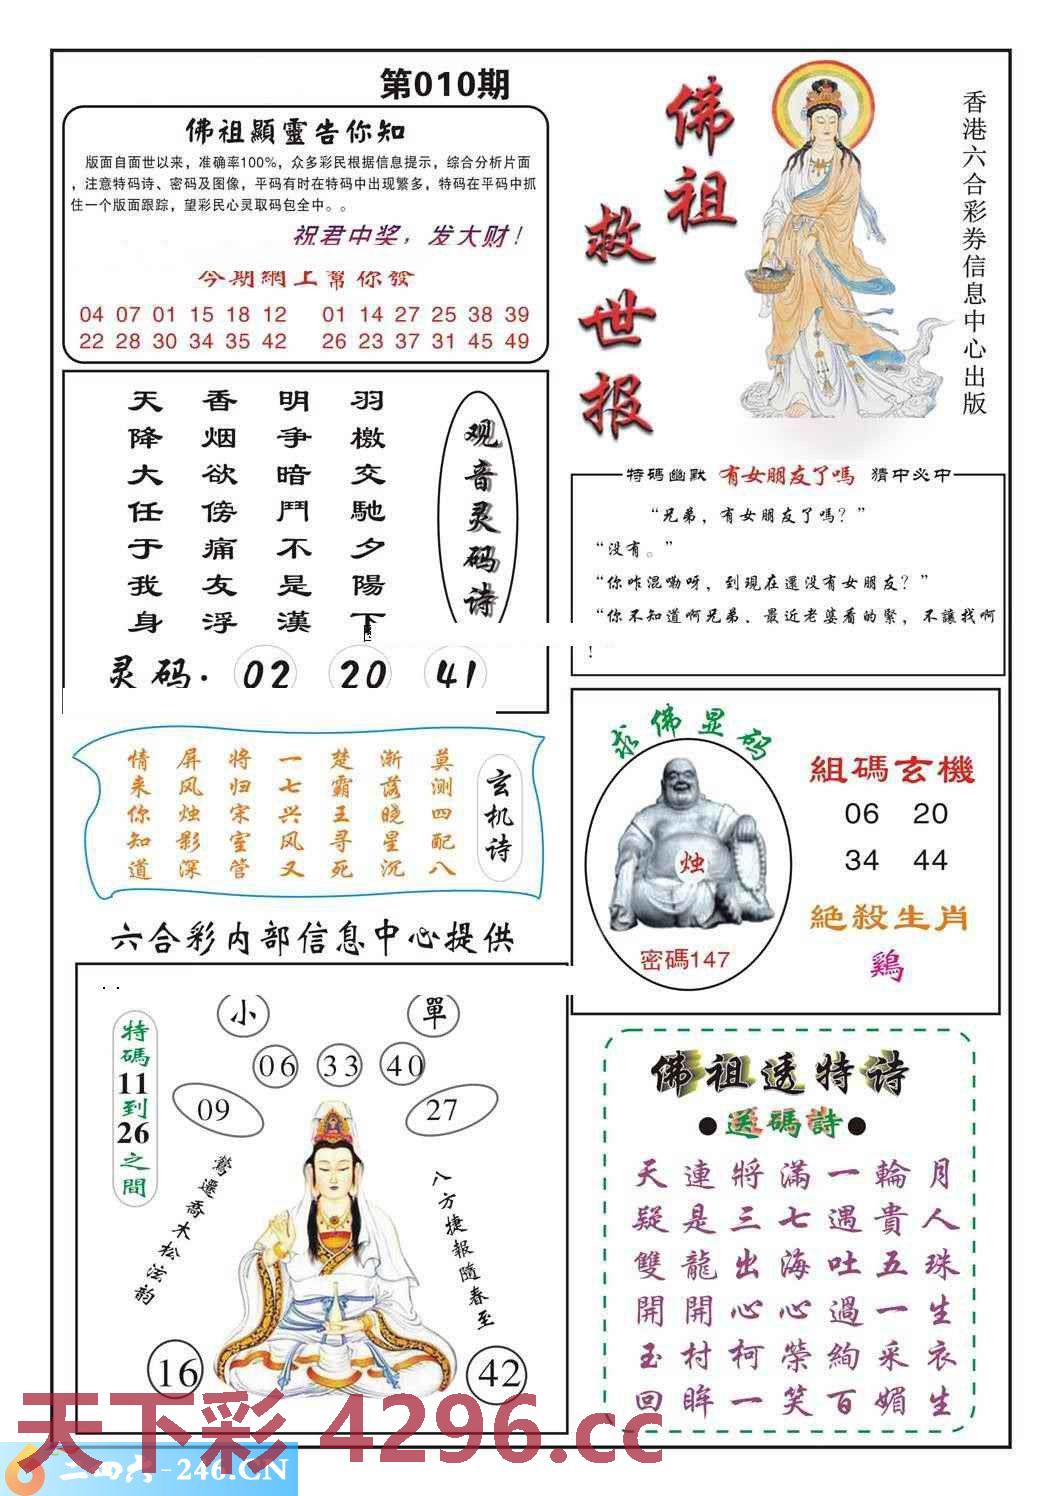 第010期
佛祖顯靈告你知
版面自面世以来，准确率100%，众多彩民根据信息提示，综合分析片面
，注意特码诗、密码及图像，平码有时在特码中出现繁多，特码在平码中抓
住一个版面跟踪，望彩民心灵取码包全中。。
祝君中奖，发大财！
今期網上幫你發
04 07 01 15 18 12 01 14 27 25 38 39
22 28 30 34 35 42 26 23 37 31 45 49
佛祖
救世报
香港六合彩券信息中心出版
羽檄交馳夕陽下
明争暗鬥不是漢
香烟欲傍痛友浮
天降大任于我身
观音灵码诗
灵码. 02 20 41
特碼幽默 有女朋友了嗎 猜中必中
“兄弟，有女朋友了嗎？”
“没有。”
“你咋混嘞呀，到現在還没有女朋友？”
“你不知道啊兄弟、最近老婆看的緊，不讓找啊
！
玄机诗
莫测四配八
渐落晓星沉
楚霸王寻死
一七兴风又
将归宋室管
屏风烛影深
情来你知道
求佛显码
烛
密碼147
組碼玄機
06 20
34 44
絶殺生肖
鷄
六合彩内部信息中心提供
特碼11到26之間
小 單
06 33 40
09 27
鶯遷喬木松泫韵
八方捷報隨春至
16 42
佛祖透特诗
●送碼詩●
天連將滿一輪月
疑是三七遇貴人
雙龍出海吐五珠
開開心心過一生
玉村柯榮絢采衣
回眸一笑百媚生
天下彩 4296.cc
二四六-246.CN